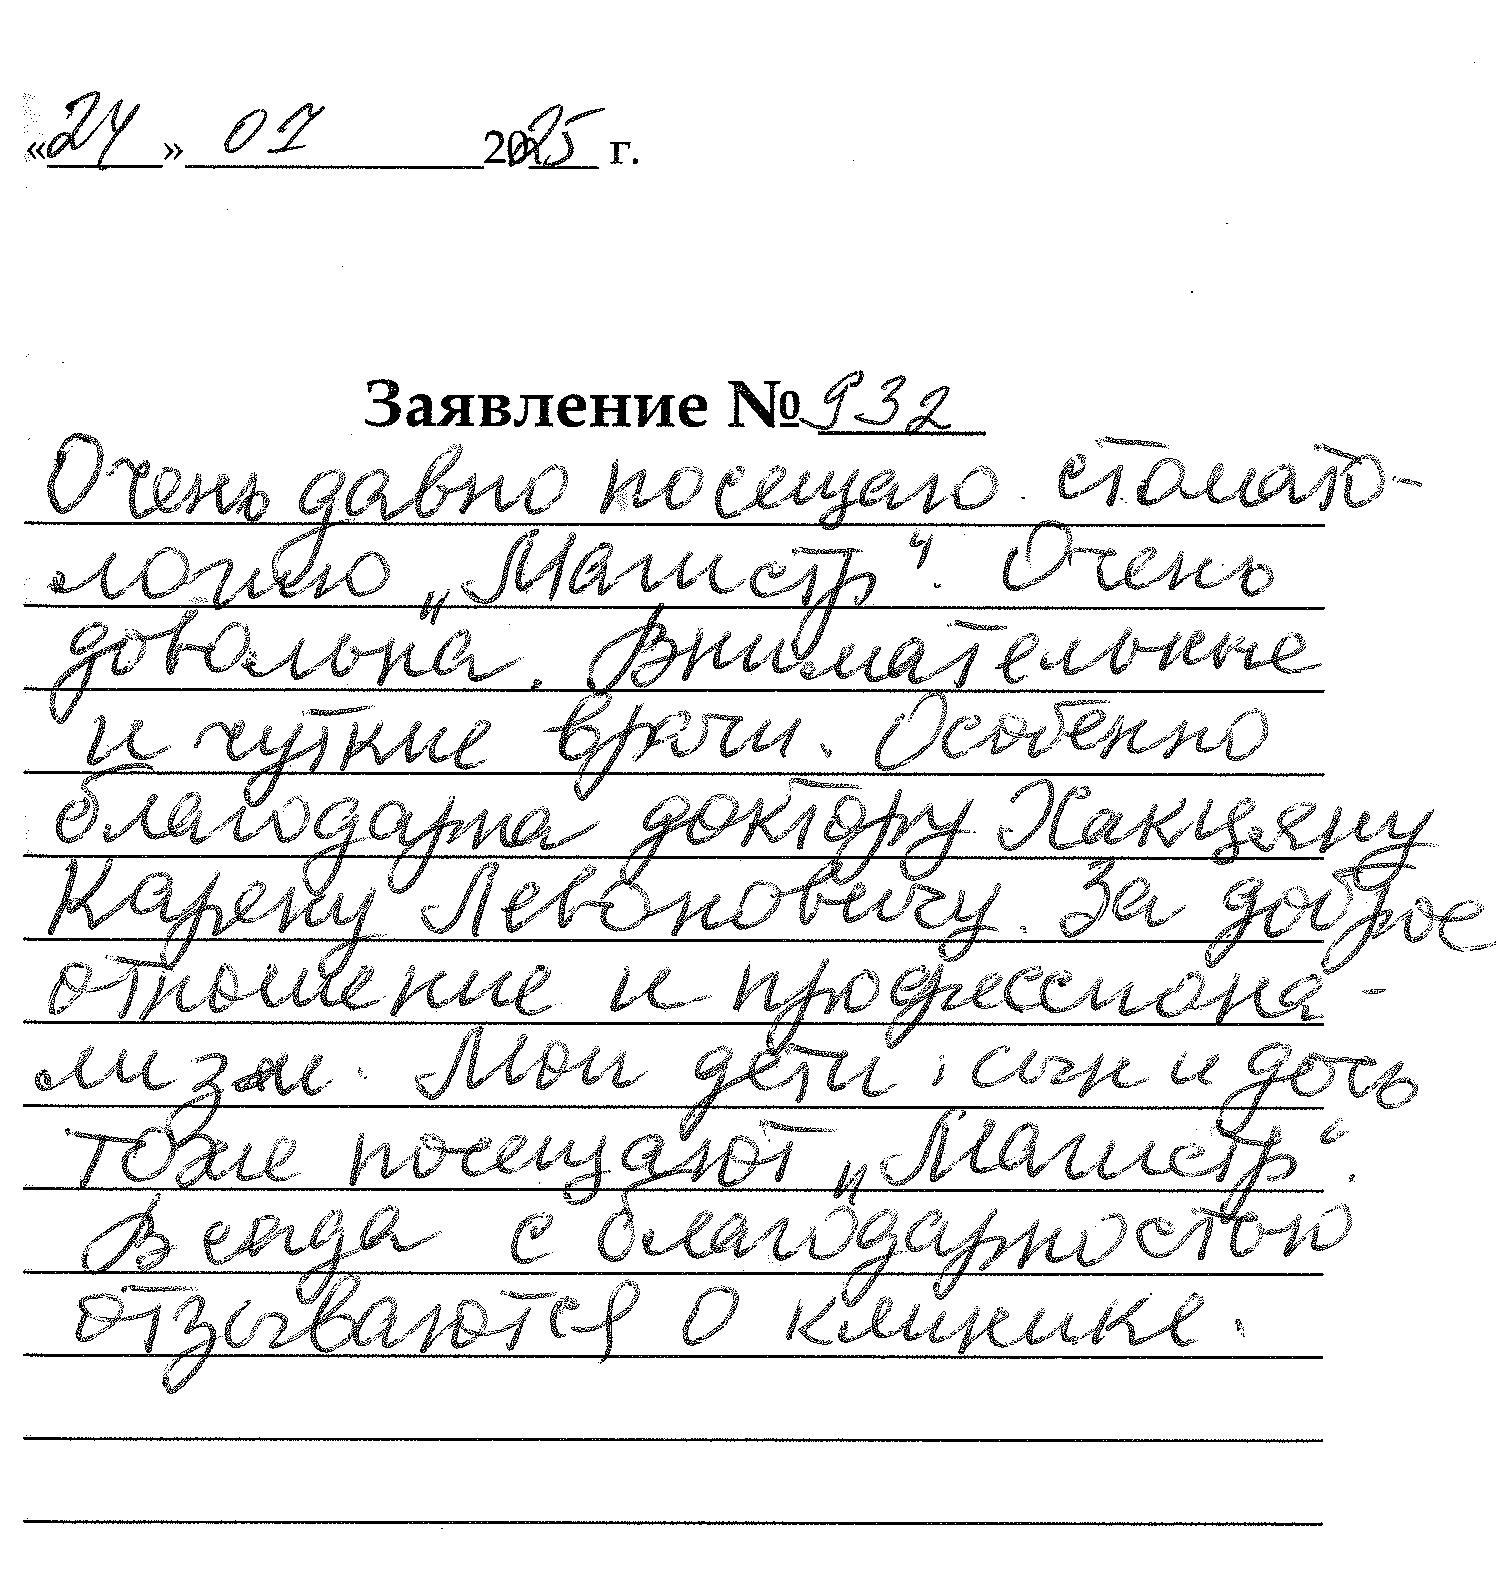 «24» 01 2025 г.
Заявление № 932
Очень давно посещаю стомато-
логию „Магистр“. Очень
довольна. Внимательные
и чуткие врачи. Особенно
благодарна доктору Хакцяну
Карену Левоновичу. За доброе
отношение и профессиона-
лизм. Мои дети: сын и дочь
тоже посещают „Магистр“.
Всегда с благодарностью
отзываются о клинике.